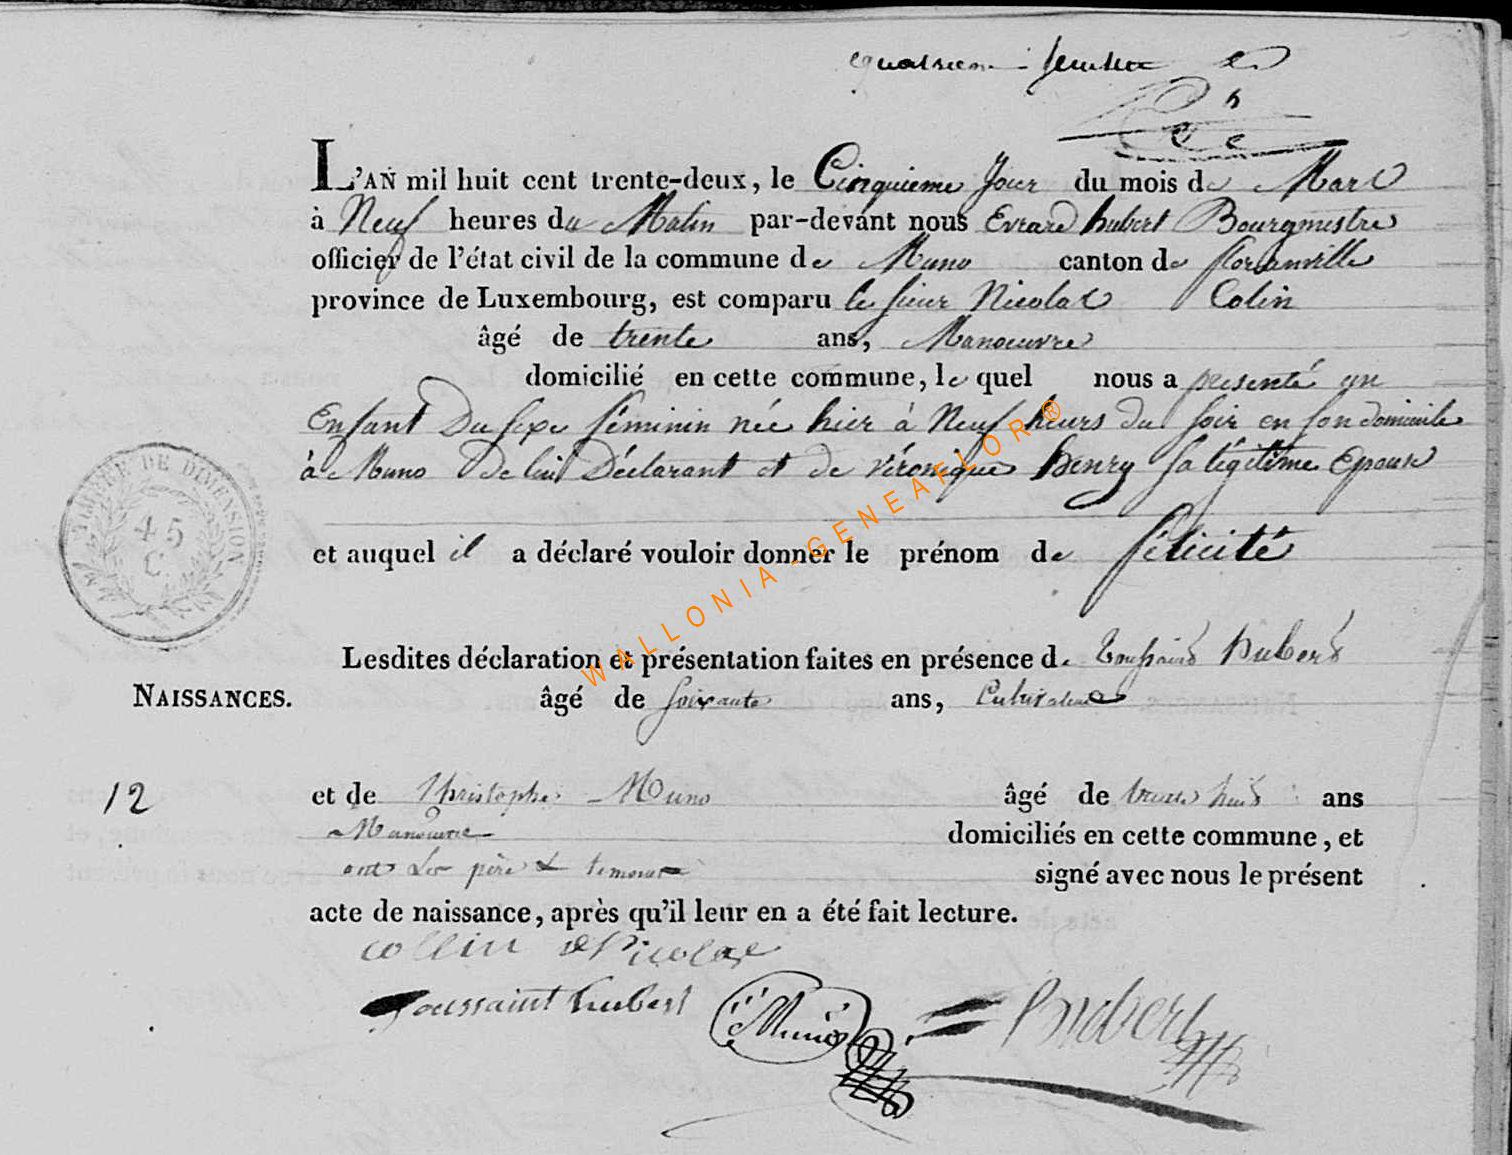 feuillet
L'AN mil huit cent trente-deux, le Cinquieme Jour du mois de Mars
à Neuf heures du Matin par-devant nous Evrard hubert Bourgmestre
officier de l'état civil de la commune de Muno canton de florenville
province de Luxembourg, est comparu le sieur Nicolas Colin
âgé de trente ans, Manoeuvre
domicilié en cette commune, le quel nous a presenté un
Enfant Du sexe féminin née hier à Neuf heurs du soir en son domicile
à Muno de lui Déclarant et de véronique henry sa légitime Epouse
TIMBRE DE DIMENSION
45
C.
et auquel il a déclaré vouloir donner le prénom de félicité
Lesdites déclaration et présentation faites en présence de Toussaint hubert
NAISSANCES. âgé de soixante ans, Cultivateur
12 et de Christophe Muno âgé de trente huit ans
Manoeuvre domiciliés en cette commune, et
ont les père & temoins signé avec nous le présent
acte de naissance, après qu'il leur en a été fait lecture.
collin Nicolas
toussaint hubert Muno hubert
WALLONIA-GENEAFLOR®